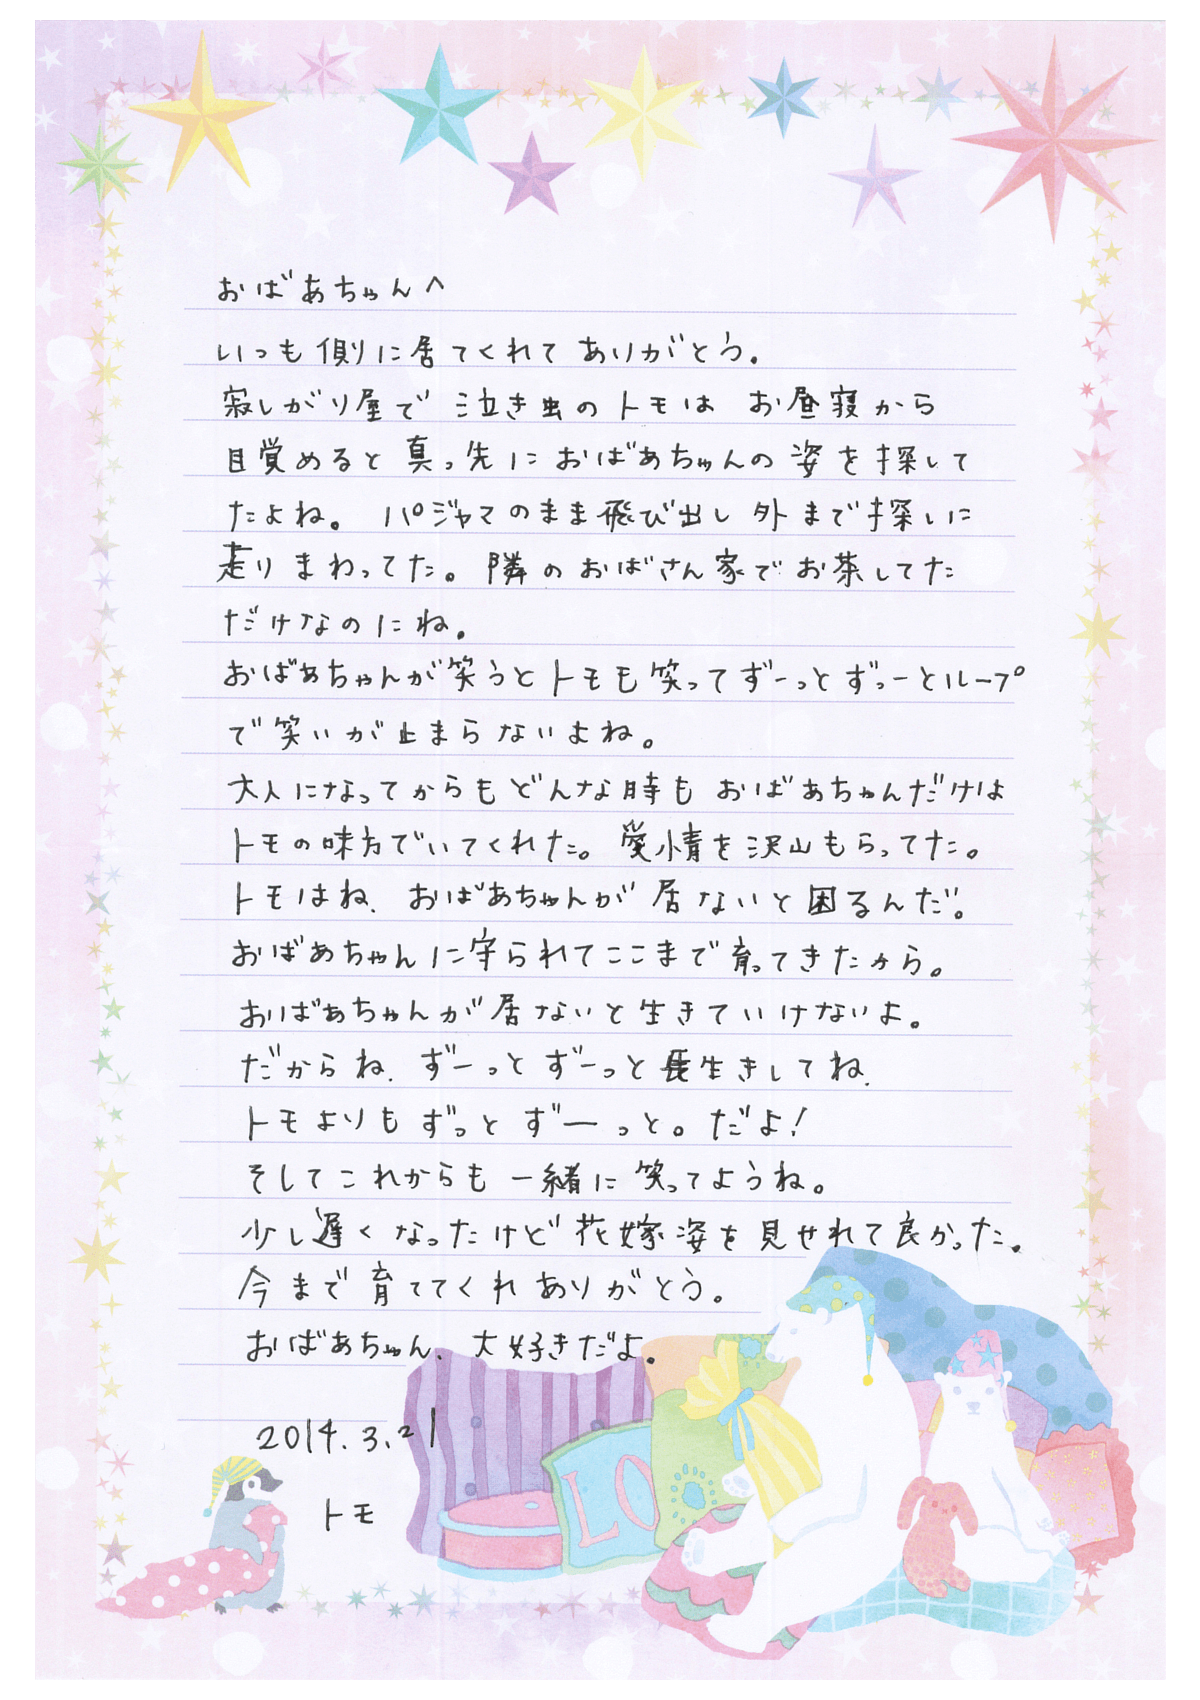 おばあちゃんへ
いつも側に居てくれてありがとう。
寂しがり屋で泣き虫のトモは お昼寝から
目覚めると真っ先におばあちゃんの姿を探して
たよね。パジャマのまま飛び出し外まで探しに
走りまわってた。隣のおばさん家でお茶してた
だけなのにね。
おばあちゃんが笑うとトモも笑ってずーっとずっーとループ
で笑いが止まらないよね。
大人になってからもどんな時もおばあちゃんだけは
トモの味方でいてくれた。愛情を沢山もらってた。
トモはね、おばあちゃんが居ないと困るんだ。
おばあちゃんに守られてここまで育ってきたから。
おばあちゃんが居ないと生きていけないよ。
だからね、ずーっとずーっと長生きしてね、
トモよりもずっとずーっと。だよ!
そしてこれからも一緒に笑ってようね。
少し遅くなったけど花嫁姿を見せれて良かった。
今まで育ててくれありがとう。
おばあちゃん、大好きだよ。
2014.3.21
トモ
LO